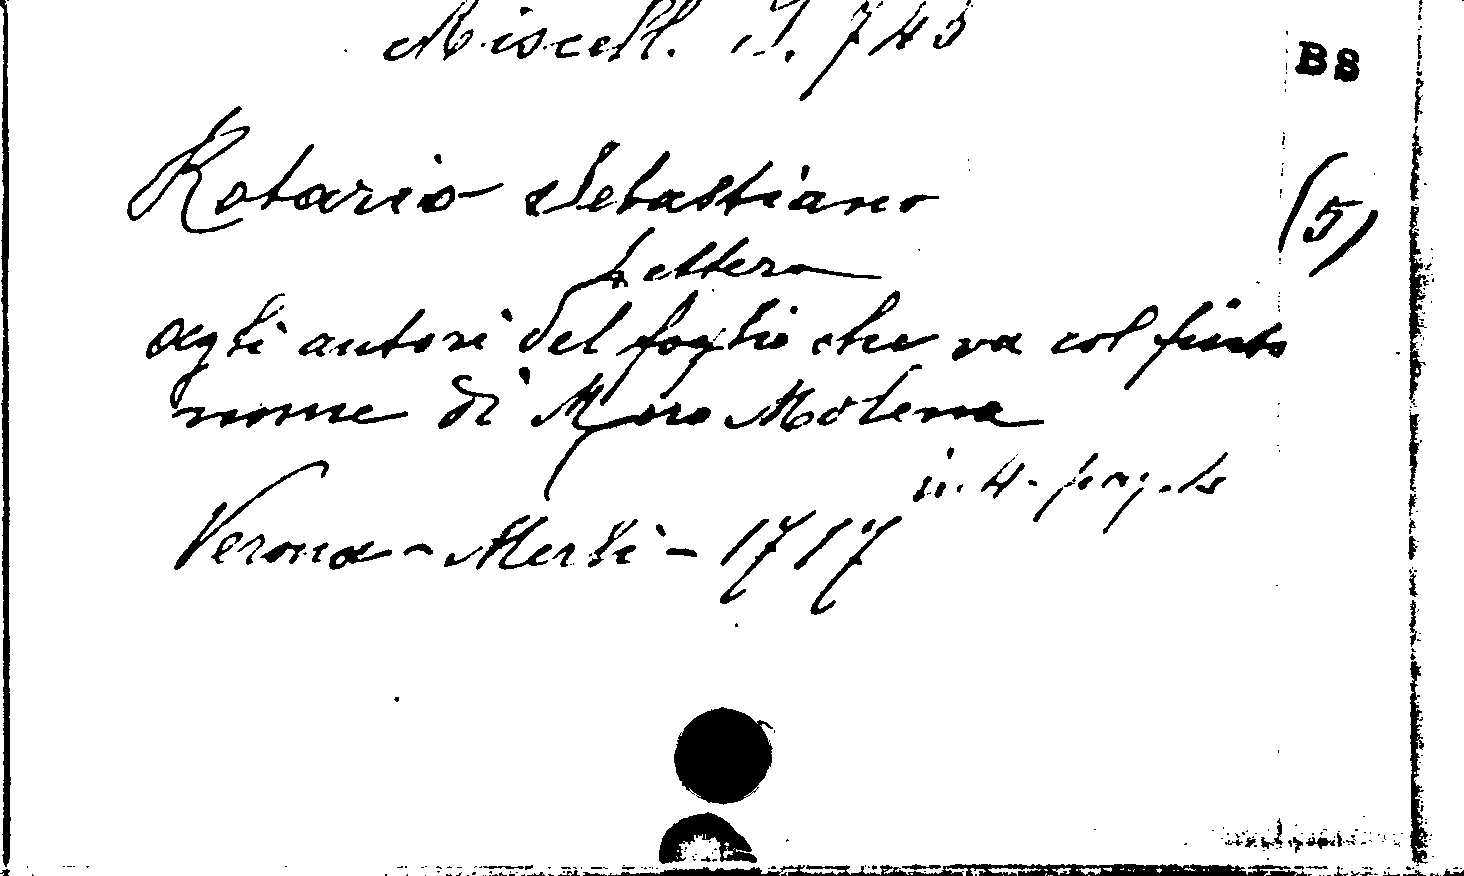 Miscell. S. 743
BS
Rotario Sebastiano
(5)
Lettera
agli autori del foglio che va col finto
nome di Moro Molena
in. 4 - pag.
Verona - Merli - 1717